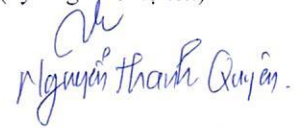 Nguyễn Thanh Quyên.